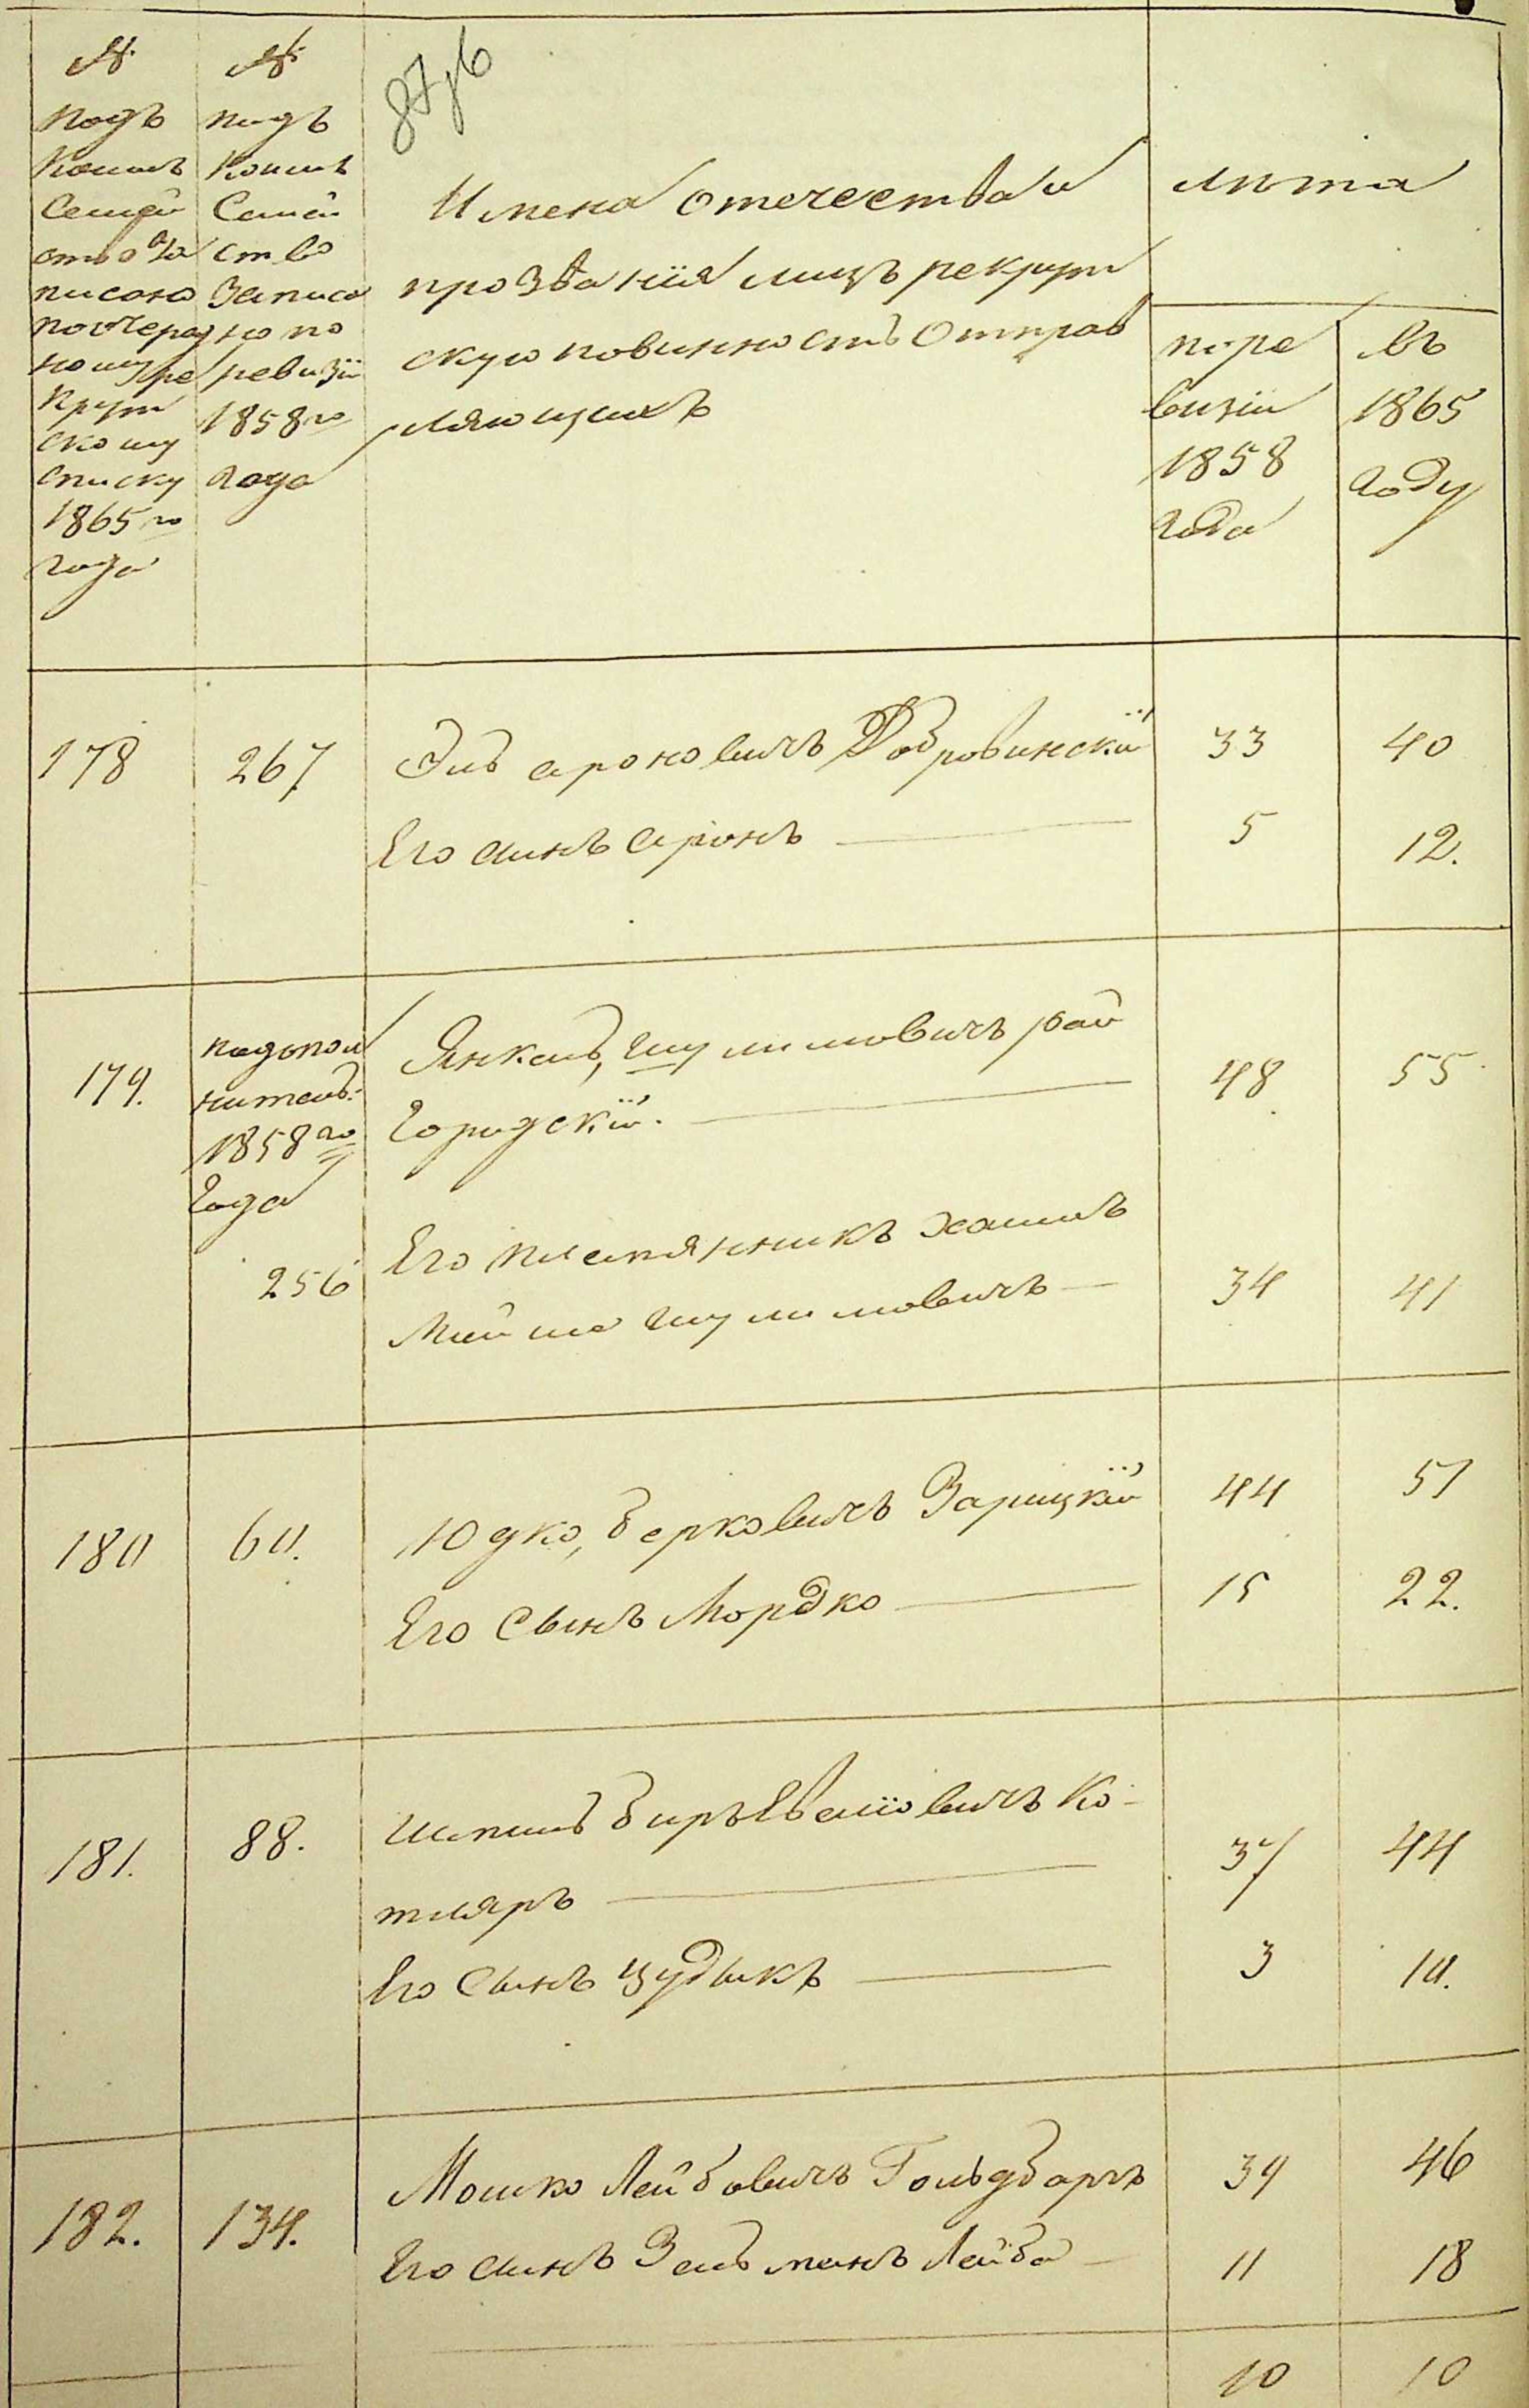 87об
№
подъ
Коимъ
Семей
ство за
писано
по очеред
ному ре
крут
скому
списку
1865го
года
№
подъ
Коимъ
Семей
ство
записа
но по
ревизіи
1858го
года
Имена отечества и
прозванія лицъ рекрут
скую повинность отправ
ляющихъ
лѣта
по ре
визіи
1858
года
въ
1865
году
178 267 Эль ароновичъ Добровинскій 33 40
Его сынъ аронъ 5 12.
179. по допол
нитель:
1858го
года
256
Янкель, Шулимовичъ рай
городскій. 48 55
Его племянникъ хаимъ
Мойше Шулимовичъ 34 41
180 60. Юдко, берковичъ Зарицкій 44 51
Его Сынъ Мордко 15 22.
181. 88. Шпиль Ко-
тляръ 37 44
Его Сынъ Цудыкъ 3 10.
182. 134. Мошко Лейбовичъ Гольдбаргъ 39 46
Его сынъ Зельманъ Лейба 11 18
10 10